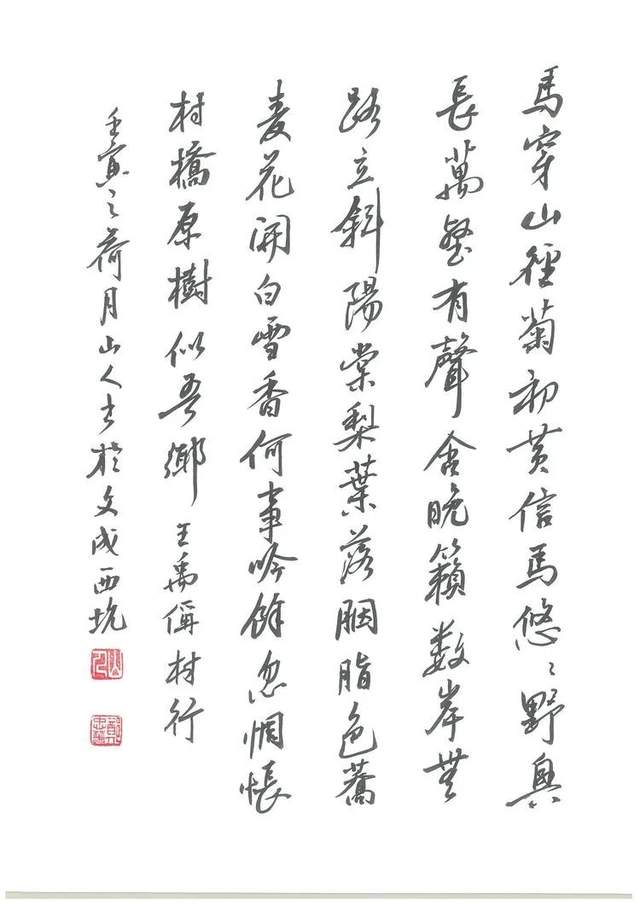 馬穿山徑菊初黃信馬悠〻野興
長萬壑有聲含晚籟數峯無
語立斜陽棠梨葉落胭脂色蕎
麥花開白雪香何事吟餘忽惆悵
村橋原樹似吾鄉 王禹偁村行
壬寅之荷月山人書於文成西坑